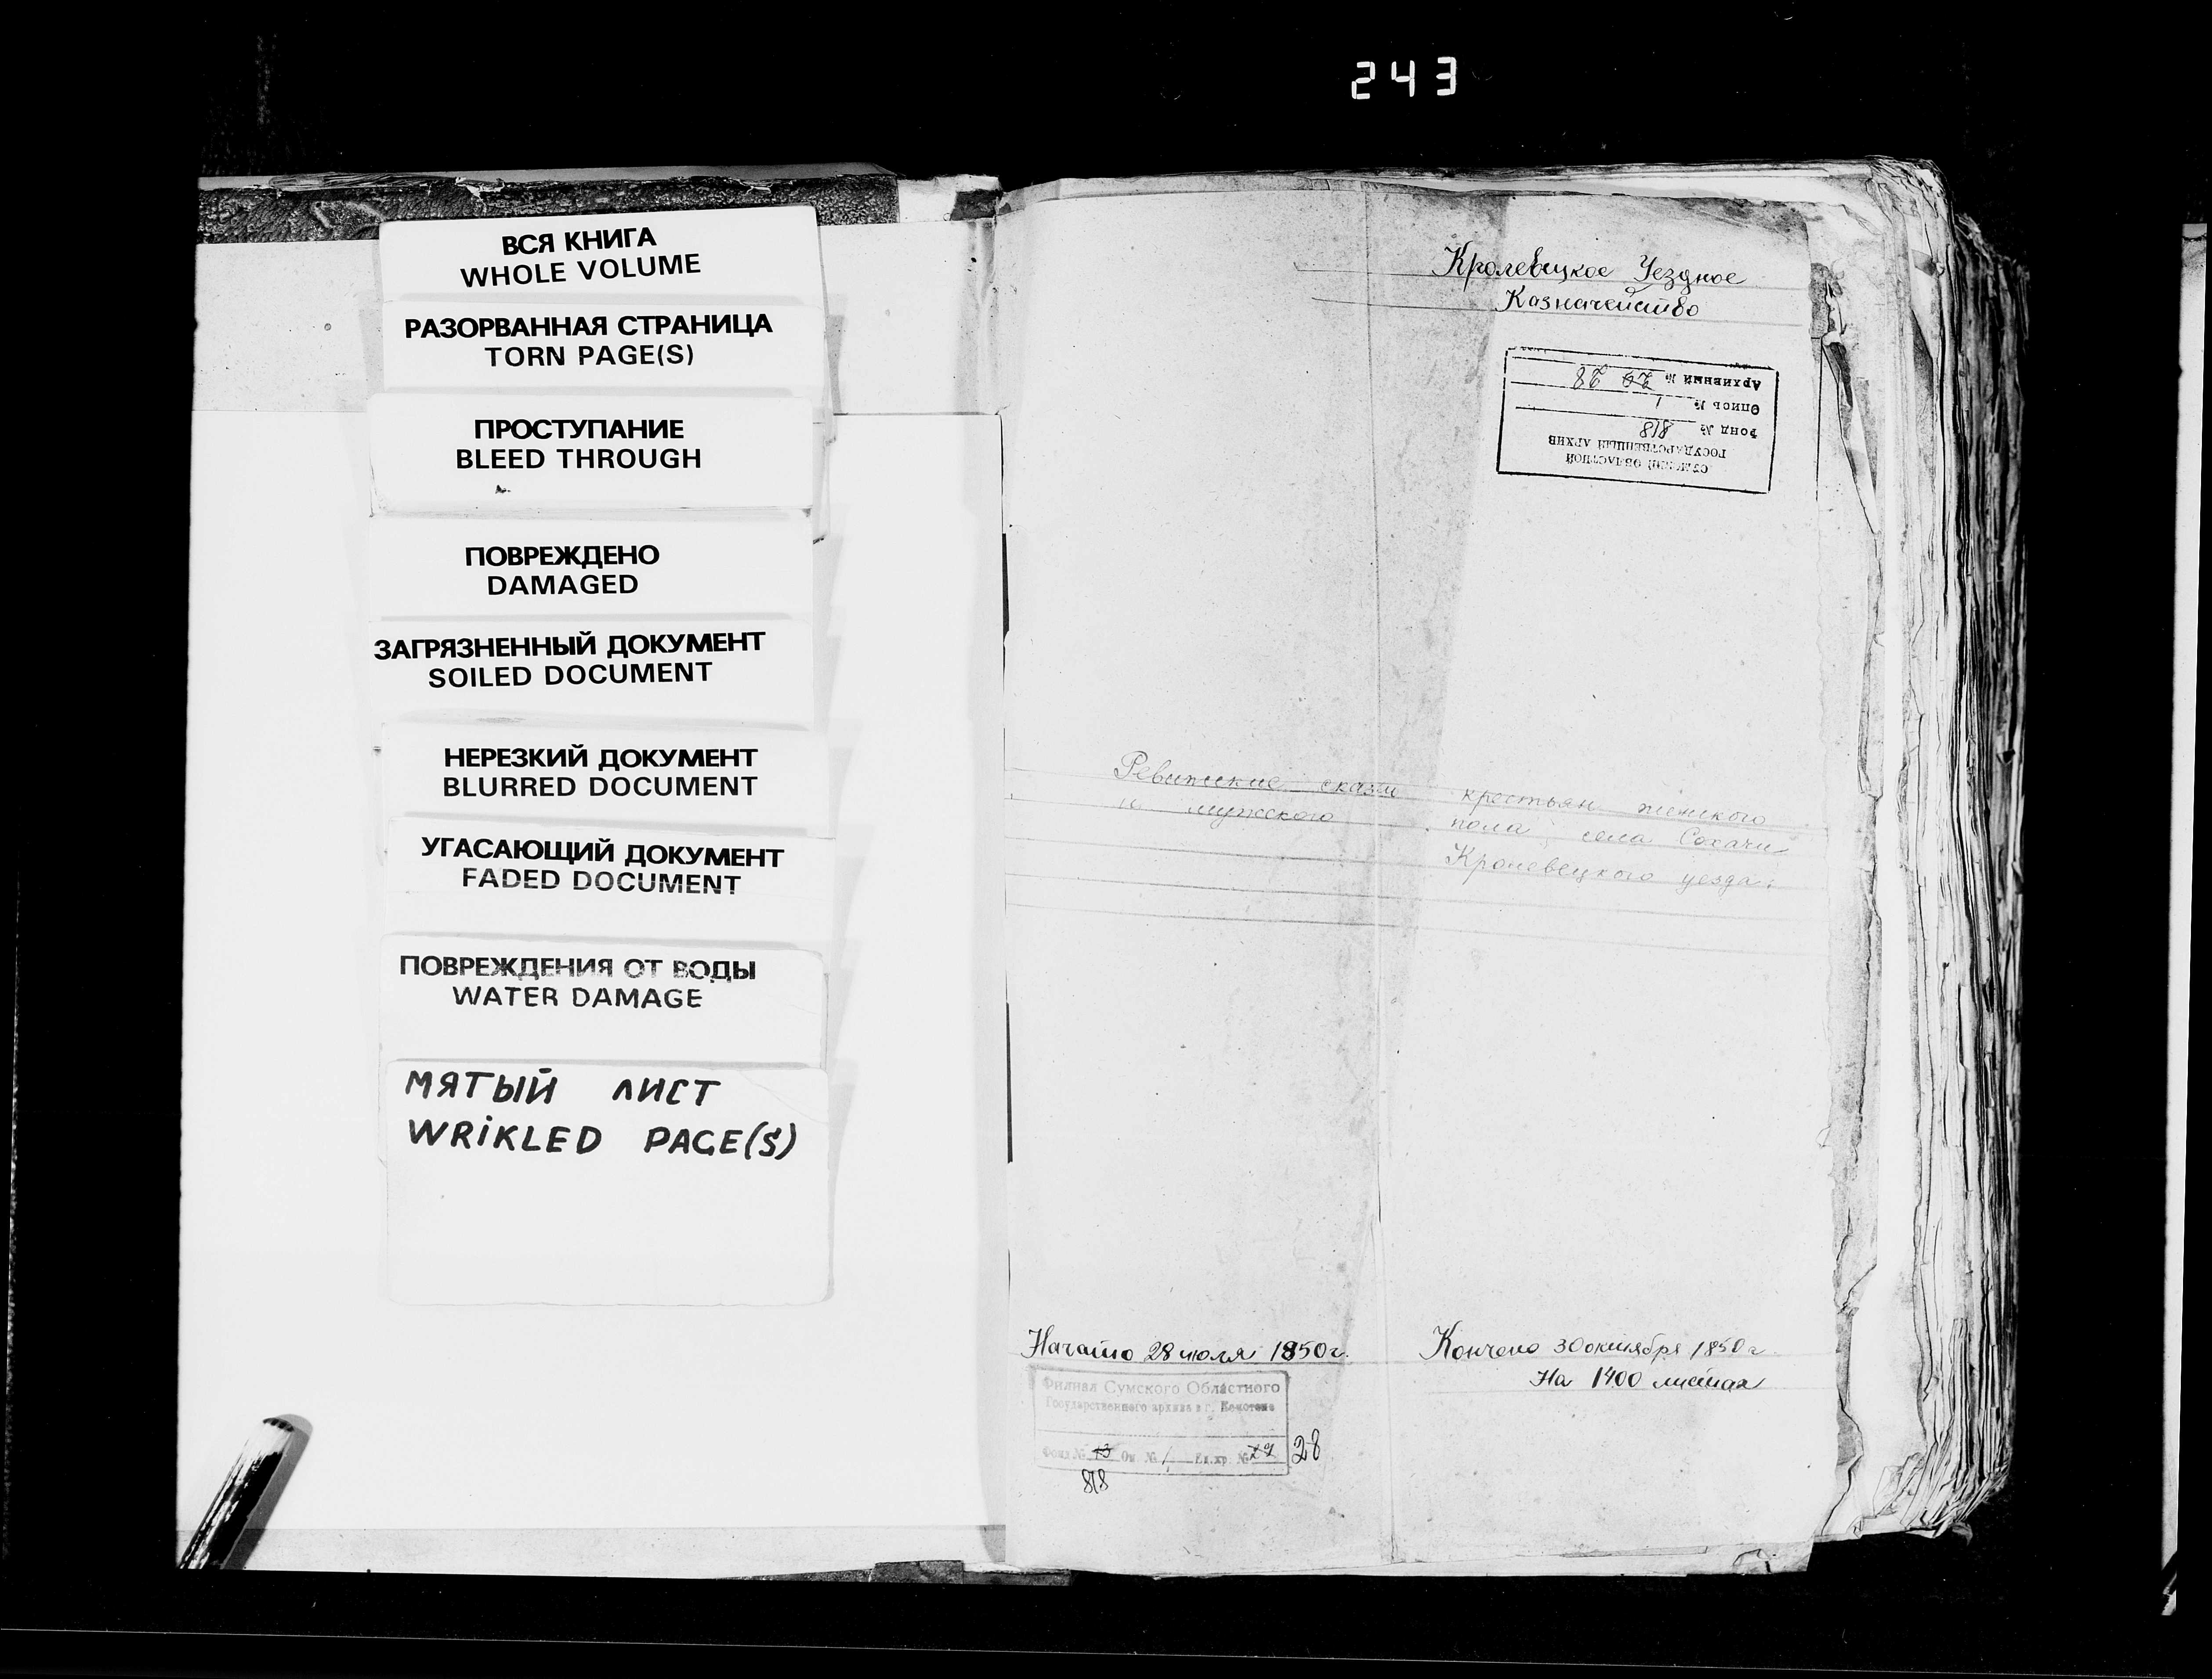 243
ВСЯ КНИГА
WHOLE VOLUME
РАЗОРВАННАЯ СТРАНИЦА
TORN PAGE(S)
ПРОСТУПАНИЕ
BLEED THROUGH
ПОВРЕЖДЕНО
DAMAGED
ЗАГРЯЗНЕННЫЙ ДОКУМЕНТ
SOILED DOCUMENT
НЕРЕЗКИЙ ДОКУМЕНТ
BLURRED DOCUMENT
УГАСАЮЩИЙ ДОКУМЕНТ
FADED DOCUMENT
ПОВРЕЖДЕНИЯ ОТ ВОДЫ
WATER DAMAGE
МЯТЫЙ ЛИСТ
WRiKLED PAGE(S)
Кролевецкое Уездное
Казначейство
СУМСКИЙ ОБЛАСТНОЙ
ГОСУДАРСТВЕННЫЙ АРХИВ
Фонд № 818
Опись № 1
Архивный № 29 28
Ревизские сказки крестьян женского
и мужского пола села Сохачи
Кролевецкого уезда.
Начато 28 июля 1850г.
Кончено 30 октября 1850г.
На 1400 листах
Филиал Сумского Областного
Государственного архива в г. Конотопе
Фонд № 13 Оп № 1 Ед.хр. № 29 28
818